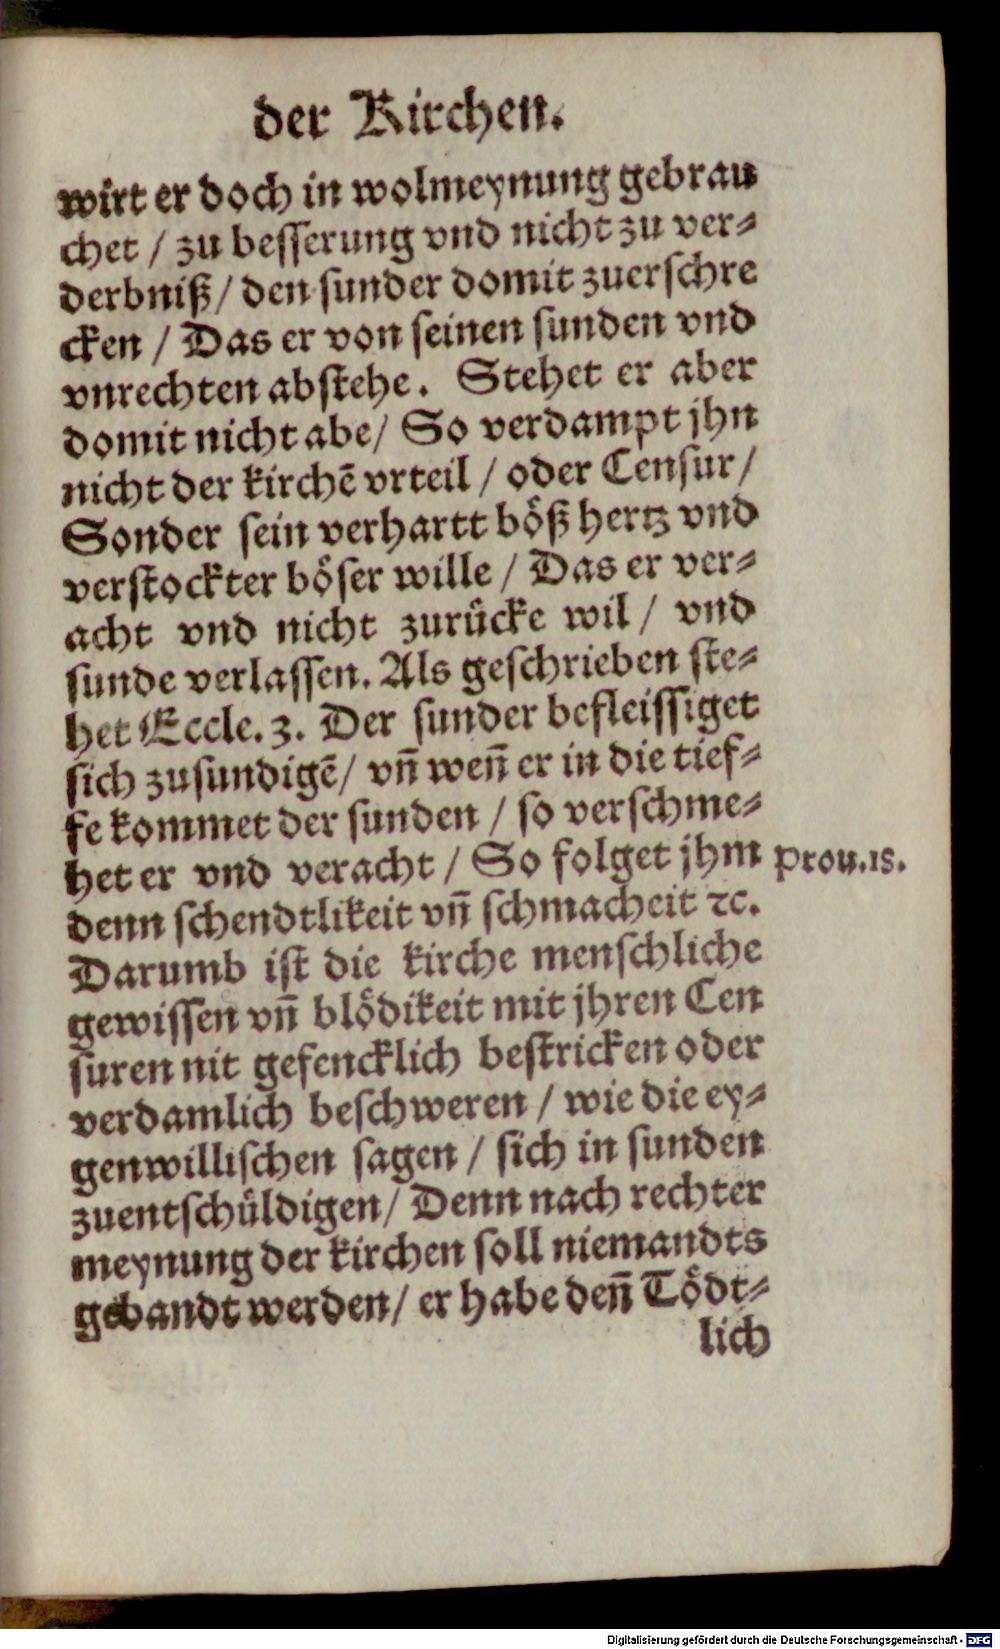 der Kirchen.
wirt er doch in wolmeynung gebrau
chet / zu besserung vnd nicht zu ver⸗
derbniß / den sunder domit zuerschre
cken / Das er von seinen sunden vnd
vnrechten abstehe. Stehet er aber
domit nicht abe / So verdampt jhn
nicht der kirchē vrteil / oder Censur /
Sonder sein verhartt böß hertz vnd
verstockter böser wille / Das er ver⸗
acht vnd nicht zurücke wil / vnd
sunde verlassen. Als geschrieben ste⸗
het Eccle. 3. Der sunder befleissiget
sich zusundigē / vn̄ wen̄ er in die tief⸗
fe kommet der sunden / so verschme⸗
het er vnd veracht / So folget jhm prou.18.
denn schendtlikeit vn̄ schmacheit ꝛc.
Darumb ist die kirche menschliche
gewissen vn̄ blödikeit mit jhren Cen
suren nit gefencklich bestricken oder
verdamlich beschweren / wie die ey⸗
genwillischen sagen / sich in sunden
zuentschüldigen / Denn nach rechter
meynung der kirchen soll niemandts
gebandt werden / er habe den̄ Tödt⸗
lich
Digitalisierung gefördert durch die Deutsche Forschungsgemeinschaft - DFG